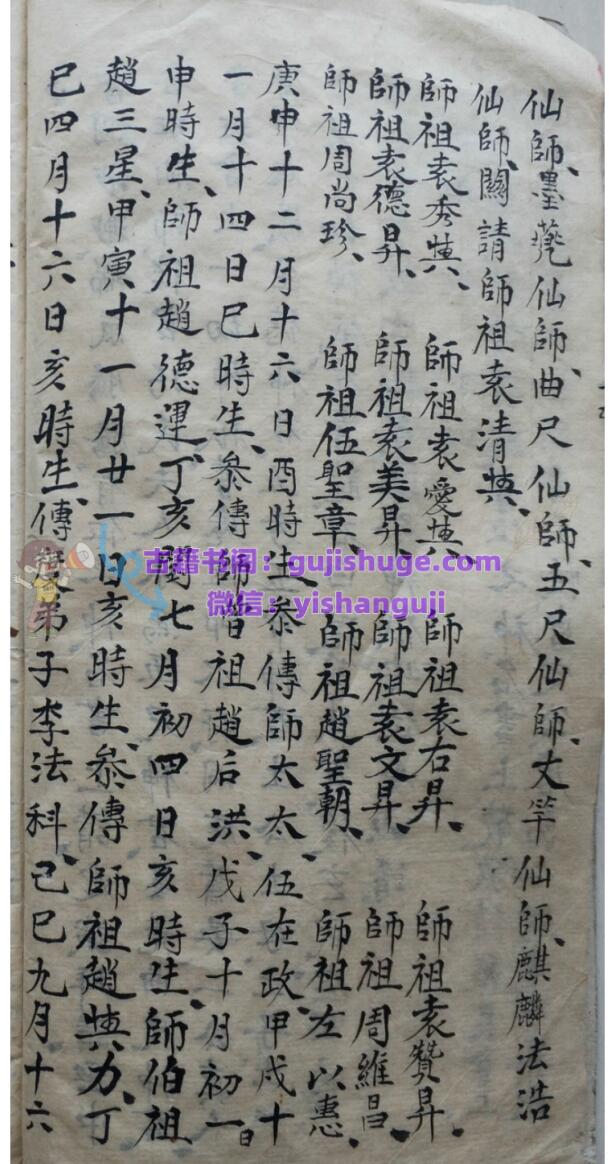 仙師、墨斗仙師、曲尺仙師、五尺仙師、丈竿仙師、麒麟法浩
仙師、關請師祖袁清典、
師祖袁秀典、師祖袁愛典、師祖袁右昇、師祖袁贊昇、
師祖袁德昇、師祖袁美昇、師祖袁文昇、師祖周維昌、
師祖周尚珍、師祖伍聖章、師祖趙聖朝、師祖左以惠、
庚申十二月十六日酉時生、叅傳師太太、伍在政、甲戌十
一月十四日巳時生、叅傳師曾祖趙后洪、戊子十月初一日
申時生、師祖趙德運、丁亥閏七月初四日亥時生、師伯祖
趙三星、甲寅十一月廿一日亥時生、叅傳師祖趙典力、丁
巳四月十六日亥時生、傳度弟子李法科、己巳九月十六
古籍书阁：gujishuge.com
微信：yishanguji